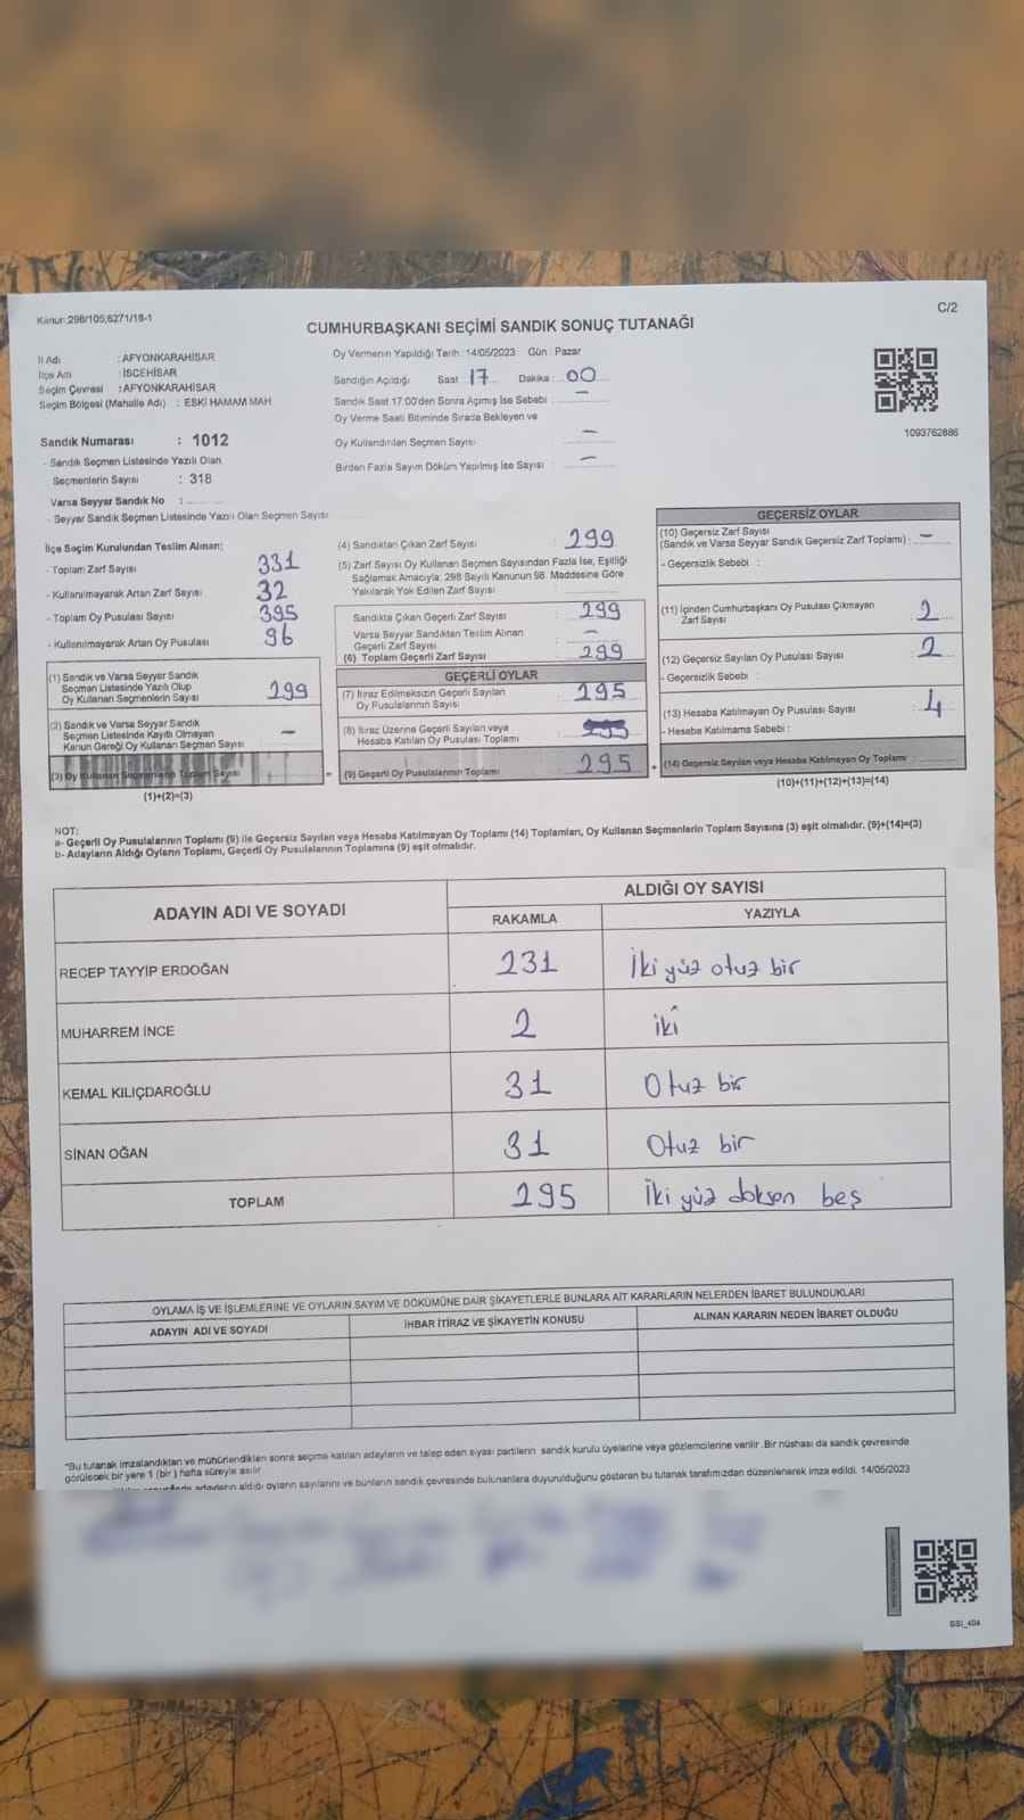 Kanun:298/105,6271/18-1
C/2
CUMHURBAŞKANI SEÇİMİ SANDIK SONUÇ TUTANAĞI
İl Adı : AFYONKARAHİSAR
İlçe Adı : İSCEHİSAR
Seçim Çevresi : AFYONKARAHİSAR
Seçim Bölgesi (Mahalle Adı) : ESKİ HAMAM MAH
Sandık Numarası : 1012
- Sandık Seçmen Listesinde Yazılı Olan
Seçmenlerin Sayısı : 318
Varsa Seyyar Sandık No :
- Seyyar Sandık Seçmen Listesinde Yazılı Olan Seçmen Sayısı
Oy Vermenin Yapıldığı Tarih :14/05/2023 Gün : Pazar
Sandığın Açıldığı Saat 17 Dakika : 00
Sandık Saat 17:00'den Sonra Açımış İse Sebebi : -
Oy Verme Saati Bitiminde Sırada Bekleyen ve
Oy Kullandırılan Seçmen Sayısı -
Birden Fazla Sayım Döküm Yapılmış İse Sayısı -
1093762886
İlçe Seçim Kurulundan Teslim Alınan:
- Toplam Zarf Sayısı 331
- Kullanılmayarak Artan Zarf Sayısı 32
- Toplam Oy Pusulası Sayısı 395
- Kullanılmayarak Artan Oy Pusulası 96
(1) Sandık ve Varsa Seyyar Sandık
Seçmen Listesinde Yazılı Olup
Oy Kullanan Seçmenlerin Sayısı 299
(2) Sandık ve Varsa Seyyar Sandık
Seçmen Listesinde Kayıtlı Olmayan
Kanun Gereği Oy Kullanan Seçmen Sayısı -
(3) Oy Kullanan Seçmenlerin Toplam Sayısı
(1)+(2)=(3)
(4) Sandıktan Çıkan Zarf Sayısı : 299
(5) Zarf Sayısı Oy Kullanan Seçmen Sayısından Fazla İse, Eşitliği
Sağlamak Amacıyla; 298 Sayılı Kanunun 98. Maddesine Göre
Yakılarak Yok Edilen Zarf Sayısı
Sandıkta Çıkan Geçerli Zarf Sayısı : 299
Varsa Seyyar Sandıktan Teslim Alınan
Geçerli Zarf Sayısı : -
(6) Toplam Geçerli Zarf Sayısı : 299
GEÇERLİ OYLAR
(7) İtiraz Edilmeksizin Geçerli Sayılan
Oy Pusulalarının Sayısı : 295
(8) İtiraz Üzerine Geçerli Sayılan veya
Hesaba Katılan Oy Pusulası Toplamı
= (9) Geçerli Oy Pusulalarının Toplamı 295
GEÇERSİZ OYLAR
(10) Geçersiz Zarf Sayısı
(Sandık ve Varsa Seyyar Sandık Geçersiz Zarf Toplamı) : -
- Geçersizlik Sebebi :
(11) İçinden Cumhurbaşkanı Oy Pusulası Çıkmayan
Zarf Sayısı 2
(12) Geçersiz Sayılan Oy Pusulası Sayısı 2
- Geçersizlik Sebebi :
(13) Hesaba Katılmayan Oy Pusulası Sayısı : 4
- Hesaba Katılmama Sebebi :
+ (14) Geçersiz Sayılan veya Hesaba Katılmayan Oy Toplamı
(10)+(11)+(12)+(13)=(14)
NOT:
a- Geçerli Oy Pusulalarının Toplamı (9) ile Geçersiz Sayılan veya Hesaba Katılmayan Oy Toplamı (14) Toplamları, Oy Kullanan Seçmenlerin Toplam Sayısına (3) eşit olmalıdır. (9)+(14)=(3)
b- Adayların Aldığı Oyların Toplamı, Geçerli Oy Pusulalarının Toplamına (9) eşit olmalıdır.
ADAYIN ADI VE SOYADI
ALDIĞI OY SAYISI
RAKAMLA YAZIYLA
RECEP TAYYİP ERDOĞAN 231 İki yüz otuz bir
MUHARREM İNCE 2 iki
KEMAL KILIÇDAROĞLU 31 Otuz bir
SİNAN OĞAN 31 Otuz bir
TOPLAM 295 İki yüz doksan beş
OYLAMA İŞ VE İŞLEMLERİNE VE OYLARIN SAYIM VE DÖKÜMÜNE DAİR ŞİKAYETLERLE BUNLARA AİT KARARLARIN NELERDEN İBARET BULUNDUKLARI
ADAYIN ADI VE SOYADI İHBAR İTİRAZ VE ŞİKAYETİN KONUSU ALINAN KARARIN NEDEN İBARET OLDUĞU
"Bu tutanak imzalandıktan ve mühürlendikten sonra seçime katılan adayların ve talep eden siyasi partilerin sandık kurulu üyelerine veya gözlemcilerine verilir .Bir nüshası da sandık çevresinde
görülecek bir yere 1 (bir ) hafta süreyle asılır
adayların aldığı oyların sayılarını ve bunların sandık çevresinde bulunanlara duyurulduğunu gösteren bu tutanak tarafımızdan düzenlenerek imza edildi. 14/05/2023